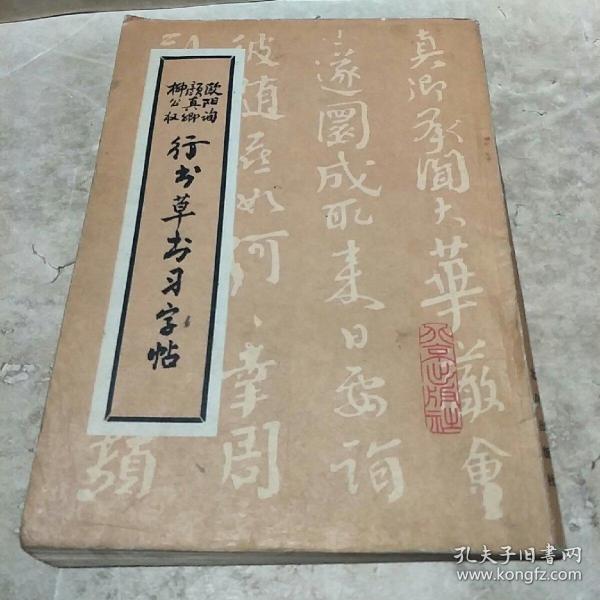 欧阳询
颜真卿
柳公权
行书草书习字帖
真卿承闻大华严会
遂圆成取来日要询
彼趋
如何
幸周
颢
出版社
孔夫子旧书网
www.kongfz.com